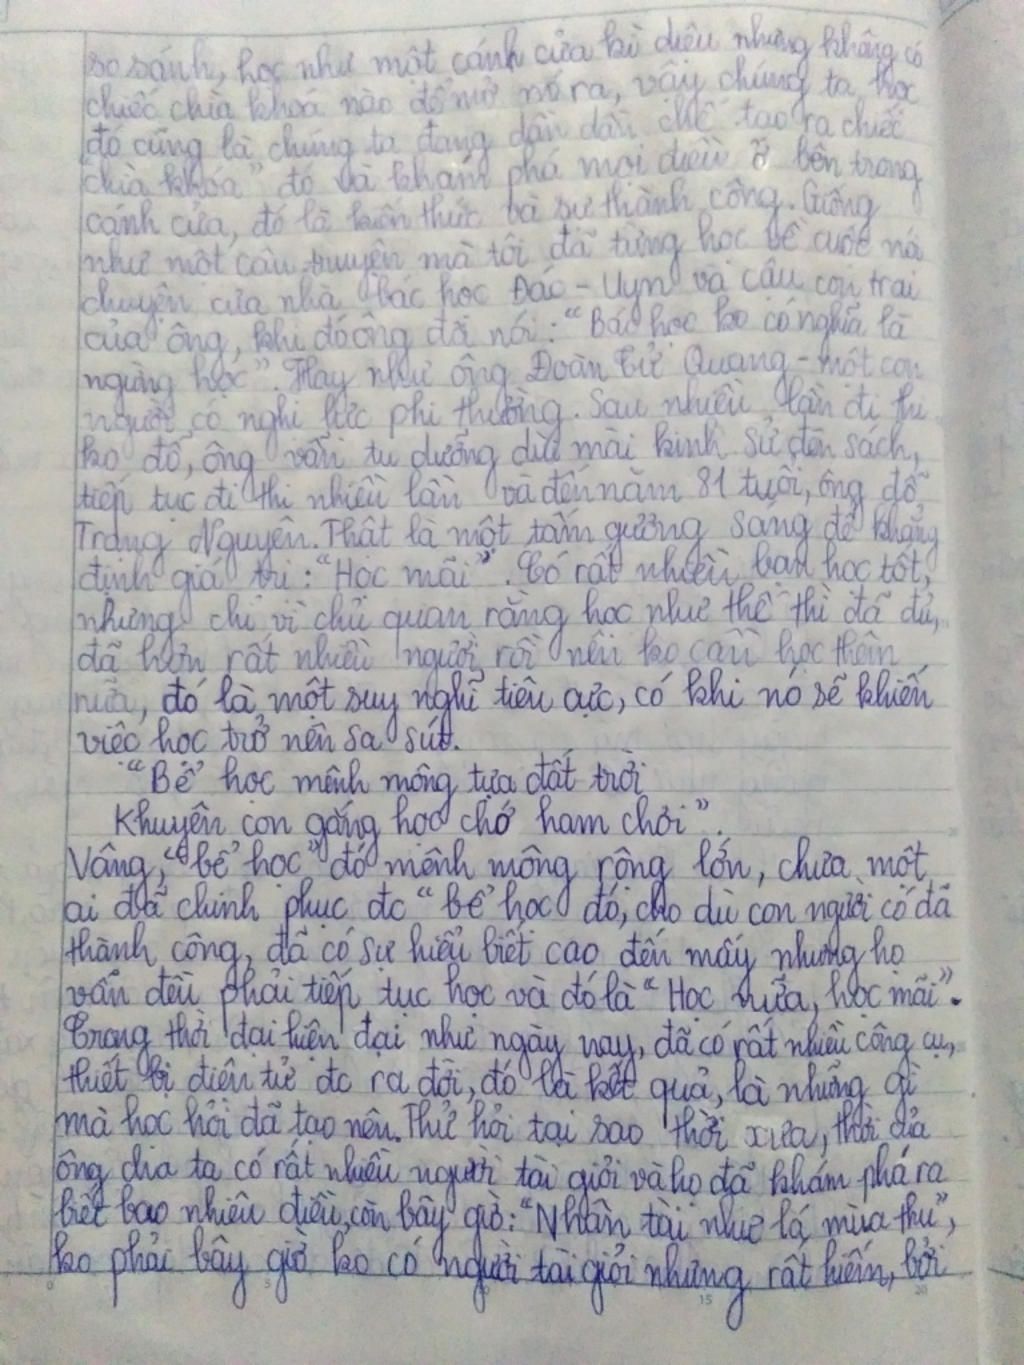 so sánh, học như một cánh cửa kì diệu nhưng không có
chiếc chìa khoá nào để mở nó ra, vậy chúng ta học
đó cũng là chúng ta đang dần dần chế tạo ra chiếc
chìa khóa" đó và khám phá mọi điều ở bên trong
cánh cửa, đó là kiến thức và sự thành công. Giống
như một câu truyện mà tôi đã từng học về cuộc nói
chuyện của nhà bác học Đác-Uyn và cậu con trai
của ông, khi đó ông đã nói: "Bác học ko có nghĩa là
ngừng học". Hay như ông Đoàn Tử Quang - một con
người có nghị lực phi thường. Sau nhiều lần đi thi
ko đỗ, ông vẫn tu dưỡng dùi mài kinh sử đèn sách,
tiếp tục đi thi nhiều lần và đến năm 81 tuổi, ông đỗ
Trạng Nguyên. Thật là một tấm gương sáng để khẳng
định giá trị: "Học mãi". Có rất nhiều bạn học tốt,
nhưng chỉ vì chủ quan rằng học như thế thì đã đủ,
đã hơn rất nhiều người rồi nên ko cần học thêm
nữa, đó là một suy nghĩ tiêu cực, có khi nó sẽ khiến
việc học trở nên sa sút.
"Bể học mênh mông tựa đất trời
Khuyên con gắng học chớ ham chơi".
Vâng, "bể học" đó mênh mông rộng lớn, chưa một
ai đã chinh phục đc "bể học đó, cho dù con người có đã
thành công, đã có sự hiểu biết cao đến mấy nhưng họ
vẫn đều phải tiếp tục học và đó là "Học nữa, học mãi".
Trong thời đại hiện đại như ngày nay, đã có rất nhiều công cụ,
thiết bị điện tử đc ra đời, đó là kết quả, là những gì
mà học hỏi đã tạo nên. Thử hỏi tại sao thời xưa, thời của
ông cha ta có rất nhiều người tài giỏi và họ đã khám phá ra
biết bao nhiêu điều, còn bây giờ: "Nhân tài như lá mùa thu",
ko phải bây giờ ko có người tài giỏi nhưng rất hiếm, bởi